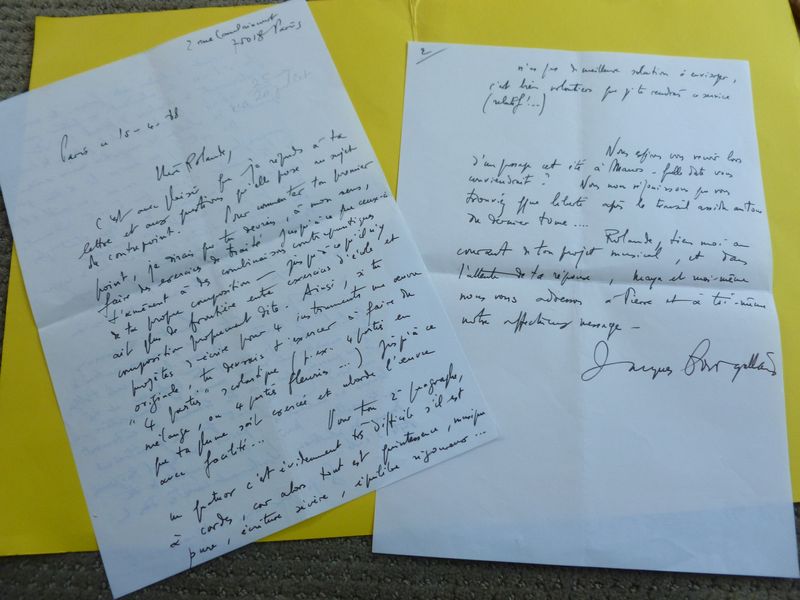 2 rue
75018 Paris
Paris le 15-4-78
Chère Rolande,
C'est avec plaisir que je réponds à ta
lettre et aux questions qu'elle pose au sujet
du contrepoint. Pour commenter ton premier
point, je dirais que tu devrais, à mon sens,
faire des exercices de traité jusqu'à ce que ceux-ci
t'amènent à des combinaisons contrapuntiques
de ta propre composition — jusqu'à ce qu'il n'y
ait plus de frontière entre exercices d'école et
composition proprement dite. Ainsi, si tu
projètes d'écrire pour 4 instruments une œuvre
originale, tu devrais t'exercer à faire du
"4 parties" scolastique (p.ex. 4 parties en
mélange, ou 4 parties fleuries...) jusqu'à ce
que ta plume soit exercée et aborde l'œuvre
avec facilité...
Pour ton 2e paragraphe,
un quatuor c'est évidemment très difficile s'il est
à cordes, car alors tout est quintessence, musique
pure, écriture sévère, équilibre rigoureux...
2
n'as pas de meilleure solution à envisager,
c'est bien volontiers que je te rendrai ce service
(relatif!...)
Nous espérons vous revoir lors
d'un passage cet été à quelle date vous
conviendrait? Nous nous réjouissons que vous
trouviez liberté après le travail
du dernier tome....
Rolande, tiens moi au
courant de ton projet musical, et dans
l'attente de ta réponse, et moi-même
nous vous adressons à Pierre et à toi-même
notre affectueux message —
Jacques